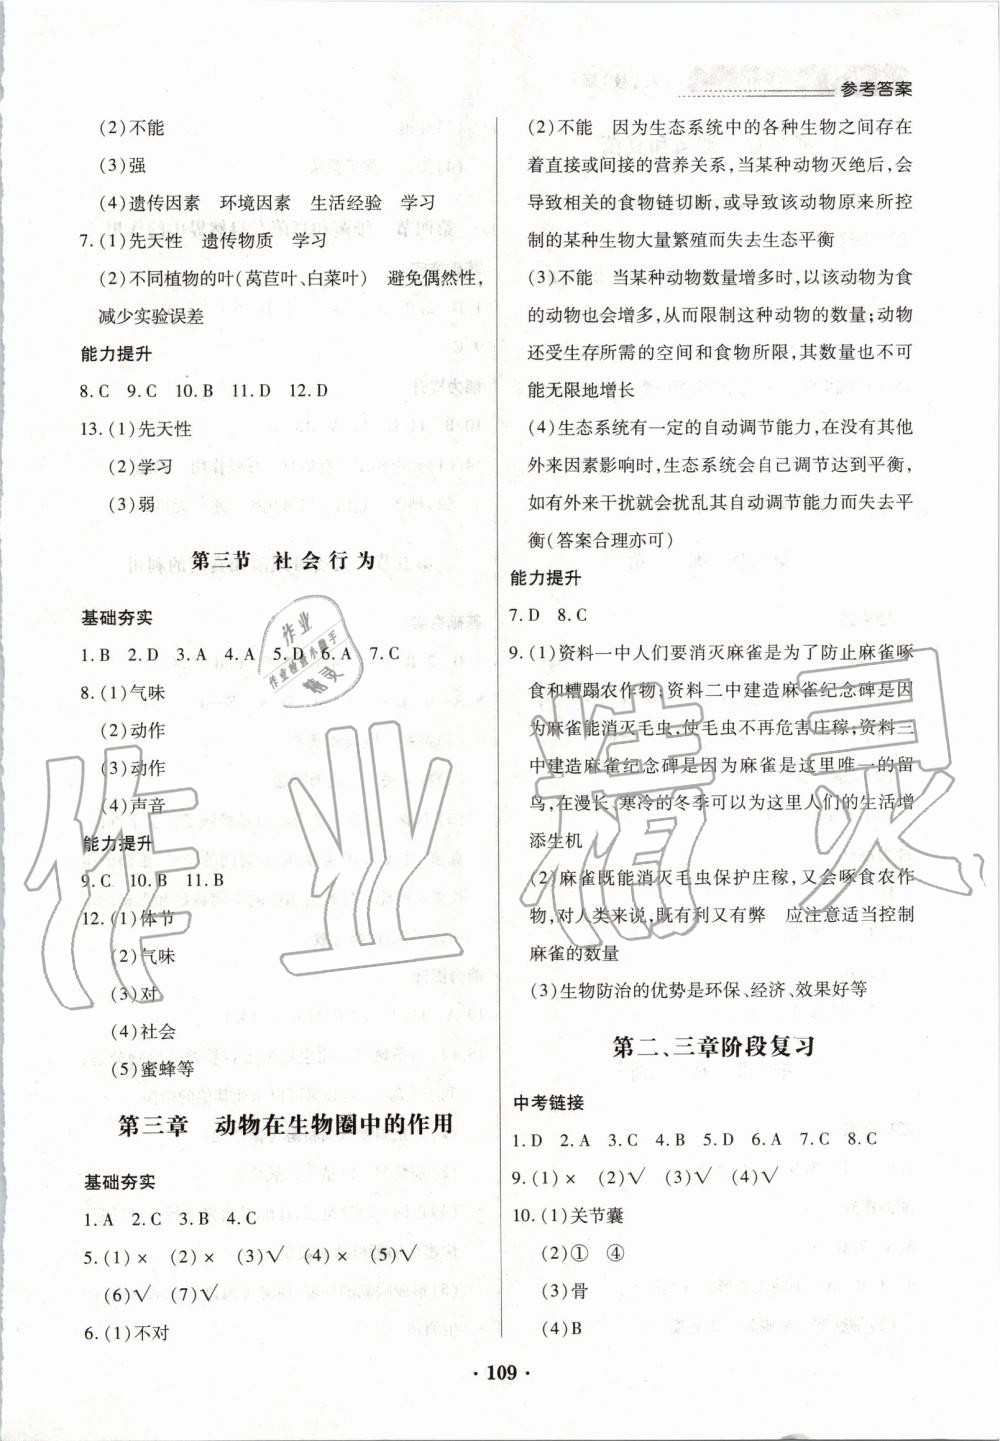 参考答案
(2)不能
(3)强
(4)遗传因素　环境因素　生活经验　学习
7.(1)先天性　遗传物质　学习
(2)不同植物的叶(莴苣叶、白菜叶)　避免偶然性，
减少实验误差
能力提升
8.C　9.C　10.B　11.D　12.D
13.(1)先天性
(2)学习
(3)弱
第三节　社会行为
基础夯实
1.B　2.D　3.A　4.A　5.D　6.A　7.C
8.(1)气味
(2)动作
(3)动作
(4)声音
能力提升
9.C　10.B　11.B
12.(1)体节
(2)气味
(3)对
(4)社会
(5)蜜蜂等
第三章　动物在生物圈中的作用
基础夯实
1.A　2.C　3.B　4.C
5.(1)×　(2)×　(3)√　(4)×　(5)√
(6)√　(7)√
6.(1)不对
(2)不能　因为生态系统中的各种生物之间存在
着直接或间接的营养关系，当某种动物灭绝后，会
导致相关的食物链切断，或导致该动物原来所控
制的某种生物大量繁殖而失去生态平衡
(3)不能　当某种动物数量增多时，以该动物为食
的动物也会增多，从而限制这种动物的数量；动物
还受生存所需的空间和食物所限，其数量也不可
能无限地增长
(4)生态系统有一定的自动调节能力，在没有其他
外来因素影响时，生态系统会自己调节达到平衡，
如有外来干扰就会扰乱其自动调节能力而失去平
衡(答案合理亦可)
能力提升
7.D　8.C
9.(1)资料一中人们要消灭麻雀是为了防止麻雀啄
食和糟蹋农作物；资料二中建造麻雀纪念碑是因
为麻雀能消灭毛虫，使毛虫不再危害庄稼；资料三
中建造麻雀纪念碑是因为麻雀是这里唯一的留
鸟，在漫长、寒冷的冬季可以为这里人们的生活增
添生机
(2)麻雀既能消灭毛虫保护庄稼，又会啄食农作
物，对人类来说，既有利又有弊　应注意适当控制
麻雀的数量
(3)生物防治的优势是环保、经济、效果好等
第二、三章阶段复习
中考链接
1.D　2.A　3.C　4.B　5.D　6.A　7.C　8.C
9.(1)×　(2)√　(3)√　(4)√
10.(1)关节囊
(2)①　④
(3)骨
(4)B
· 109 ·
作业
作业检查小助手
精灵
作业精灵